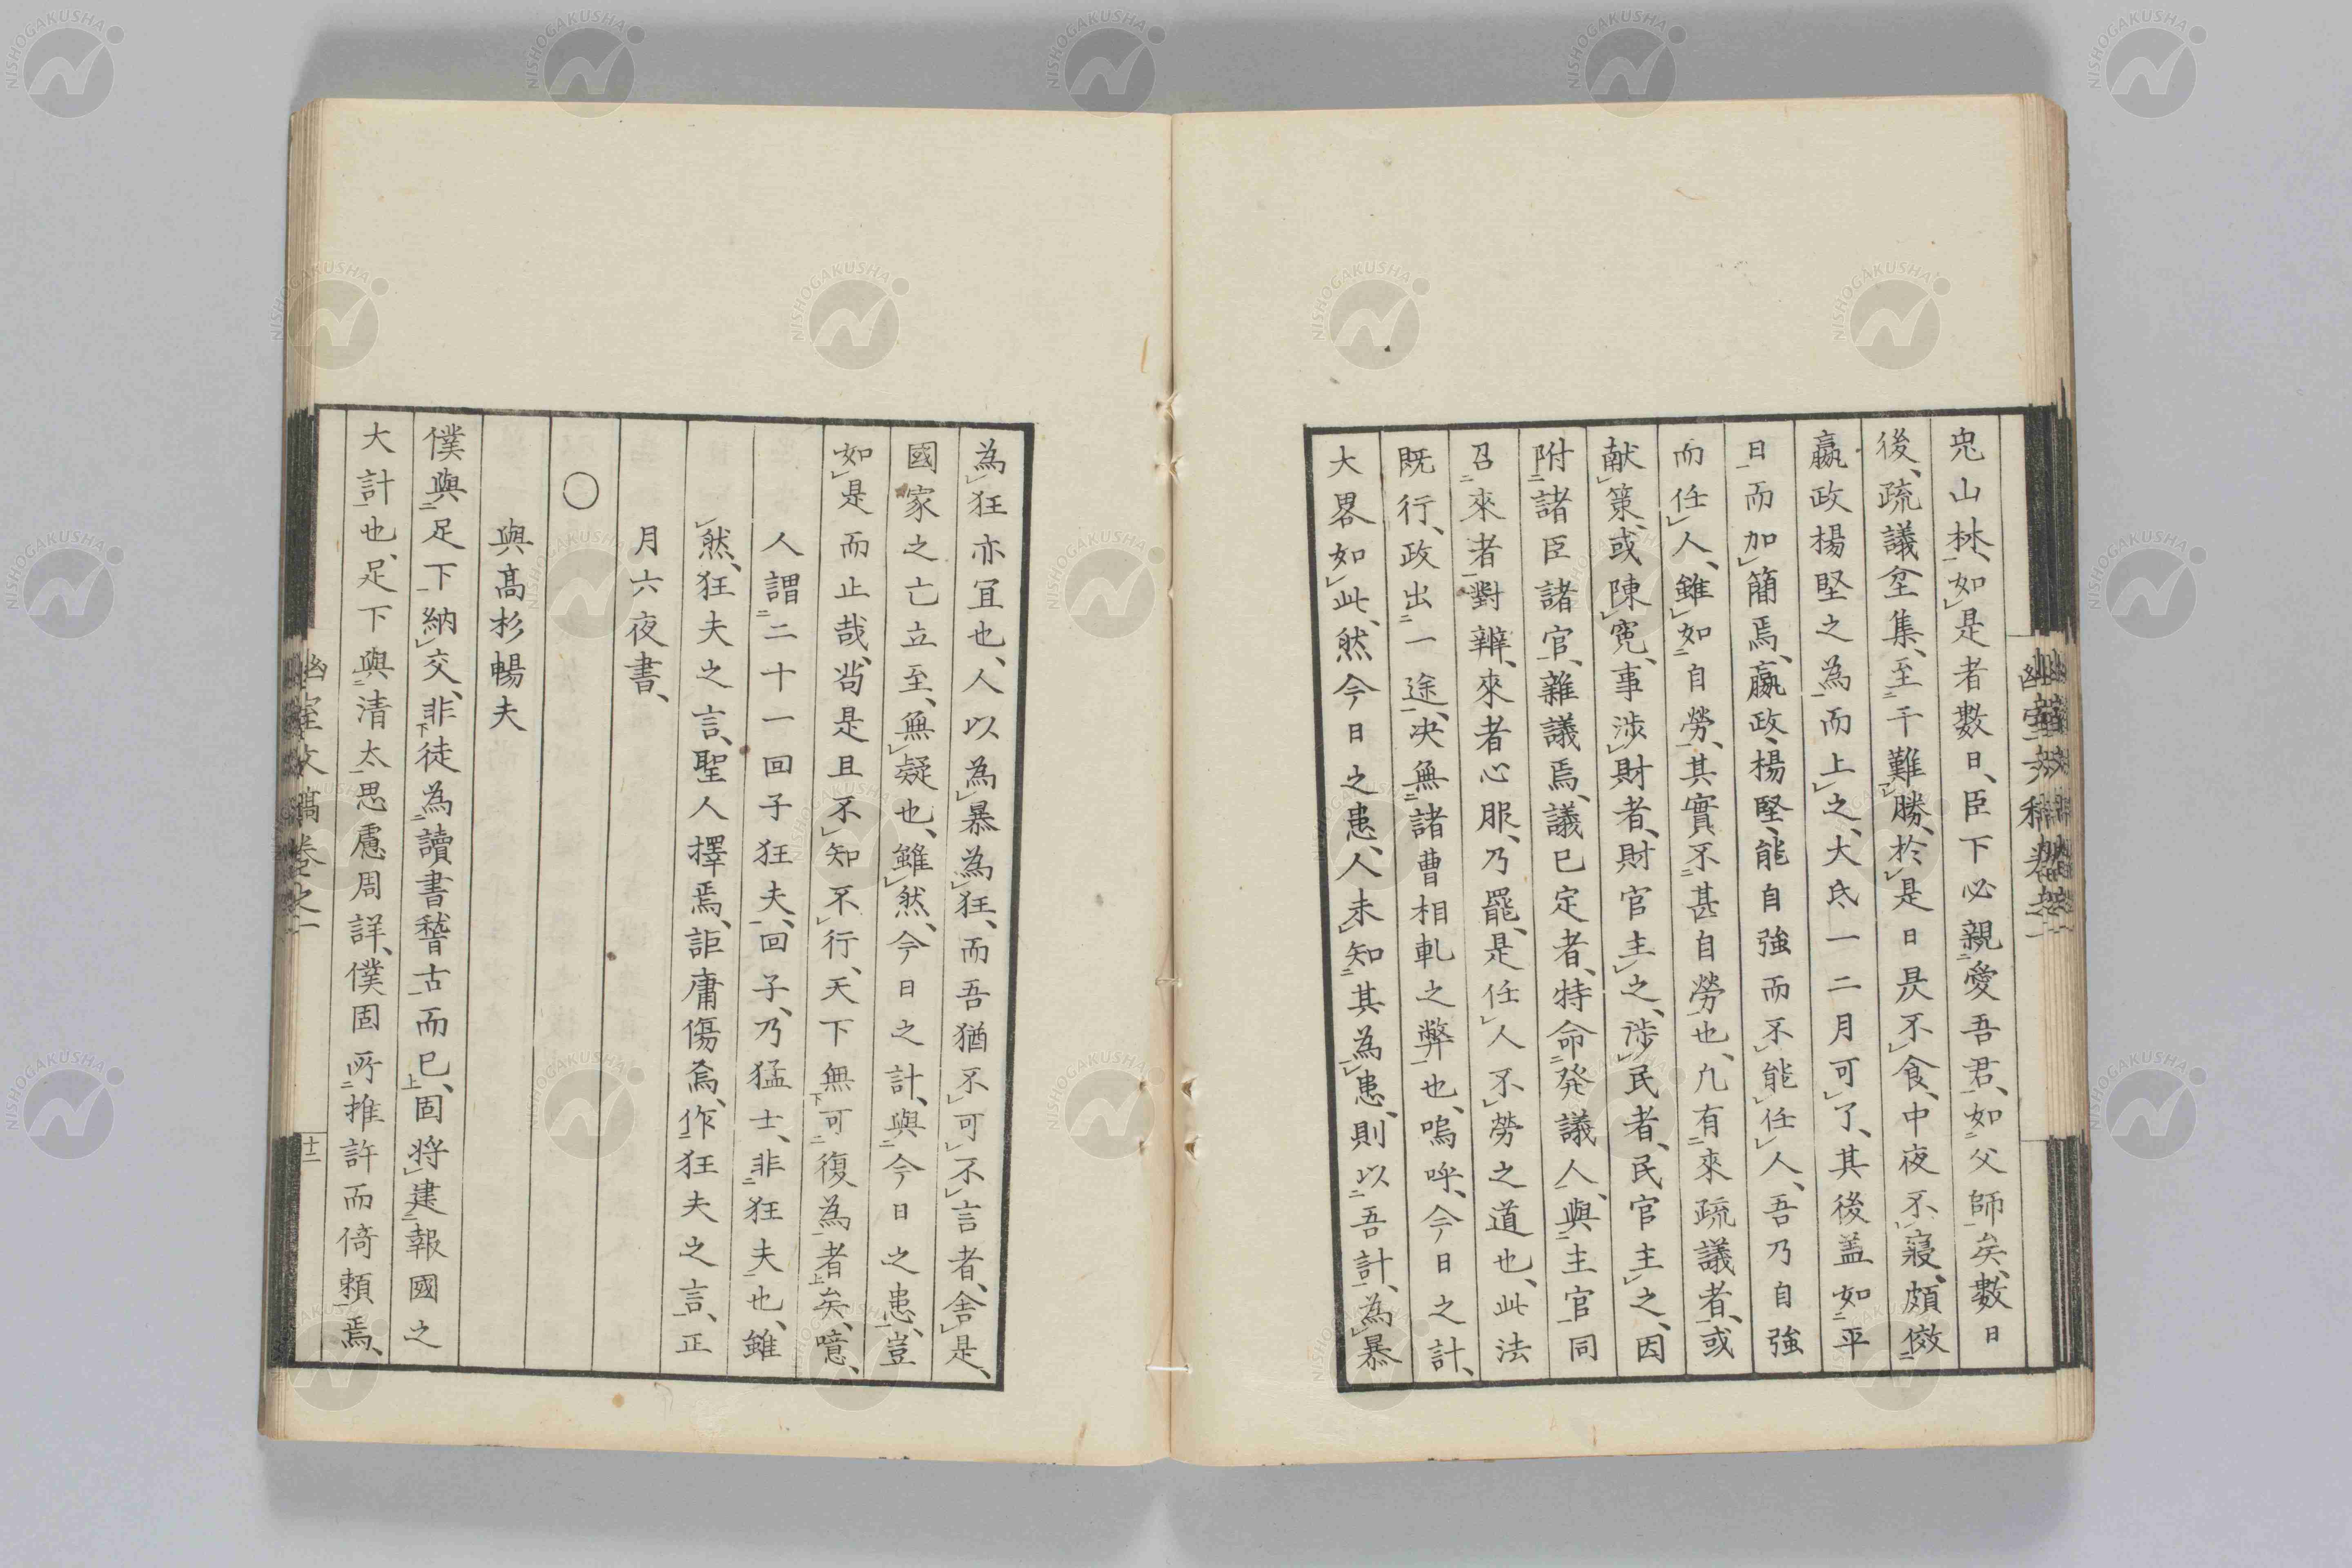 兕山林、如是者數日、臣下必親愛吾君、如父師矣、數日
後、疏議坌集、至干難勝、於是日昃不食、中夜不寢、頗倣
嬴政楊堅之為而上之、大氐一二月可了、其後盖如平
日而加簡焉、嬴政、楊堅、能自強而不能任人、吾乃自強
而任人、雖如自勞、其實不甚自勞也、凢有來疏議者、或
献策、或陳寃、事涉財者、財官主之、涉民者、民官主之、因
附諸臣諸官、雜議焉、議已定者、特命発議人、與主官同
召來者對辨、來者心服、乃罷、是任人不勞之道也、此法
既行、政出一途、决無諸曹相軋之弊也、嗚呼、今日之計、
大畧如此、然今日之患、人未知其為患、則以吾計、為暴
為狂亦宜也、人以為暴為狂、而吾猶不可不言者、舍是、
國家之亡立至、無疑也、雖然、今日之計、與今日之患、豈
如是而止哉、尚是且不知不行、天下無可復為者矣、噫、
人謂二十一回子狂夫、回子、乃猛士、非狂夫也、雖
然、狂夫之言、聖人擇焉、詎庸傷為、作狂夫之言、正
月六夜書、
○
與髙杉暢夫
僕與足下納交、非徒為讀書稽古而已、固将建報國之
大計也、足下與清太思慮周詳、僕固所推許而倚頼焉、
幽室文稿卷之一
十二